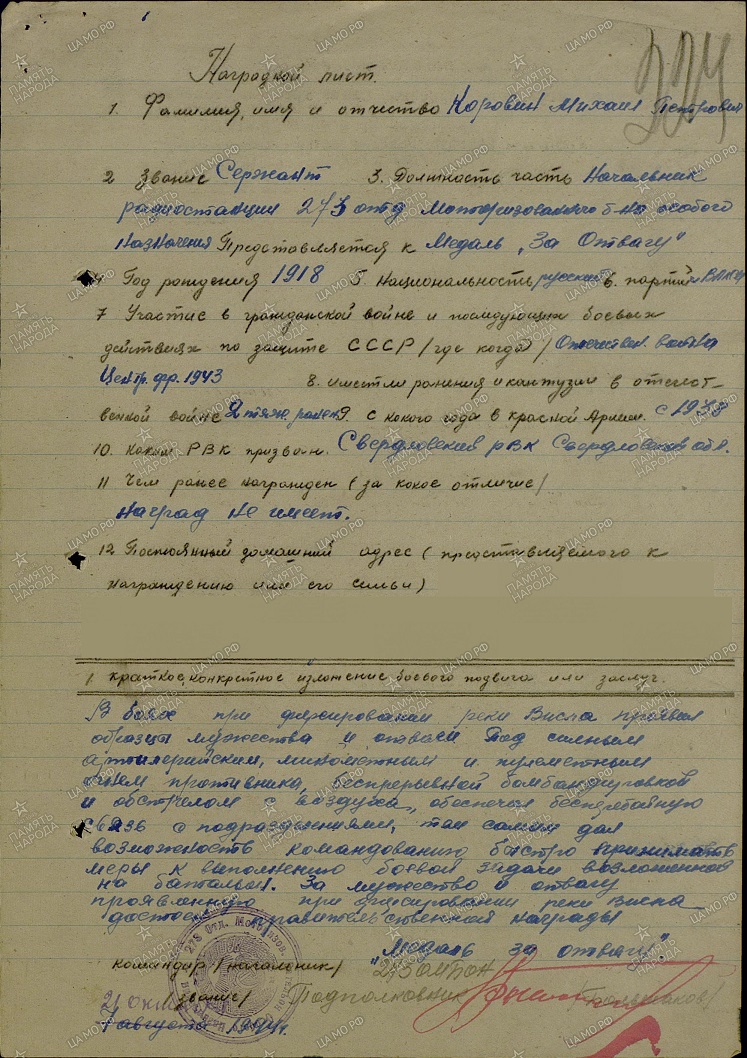 Наградной лист.
324
1. Фамилия, имя и отчество Коровин Михаил Петрович
2 Звание Сержант 3. Должность часть Начальник
радиостанции 273 отд моторизованного б-на особого
назначения Представляется к Медаль „За Отвагу"
4 Год рождения 1918 5. Национальность русский 6. партий
7 Участие в гражданской войне и последующих боевых
действиях по защите СССР /где когда/ Отечествен. война
Центр. фр. 1943 8. имеет ли ранения и контузии в отечест-
венной войне 2 тяж. ранен 9. с какого года в красной Армии. с
10. каким РВК призван. Свердловский РВК Свердловской обл.
11 Чем ранее награжден (за какое отличие/
Наград не имеет.
12 Постоянный домашний адрес (представляемого к
награждению или его семьи)
1. краткое, конкретное изложение боевого подвига или заслуг.
В боях при форсировании реки Висла проявил
образцы мужества и отваги Под сильным
артиллерийским, минометным и пулеметным
огнем противника, беспрерывной бомбандировкой
и обстрелом с воздуха, обеспечил бесперебойную
связь с подразделениями, тем самым дал
возможность командованию быстро принимать
меры к выполнению боевой задачи возложенной
на батальон. За мужество и отвагу
проявленную при форсировании реки Висла
достоен правительственной награды
"Медаль за отвагу".
командир /начальник/ 273 ОМБОН
звание/ Подполковник
августа 1944г.
273 Отд. Моториз.